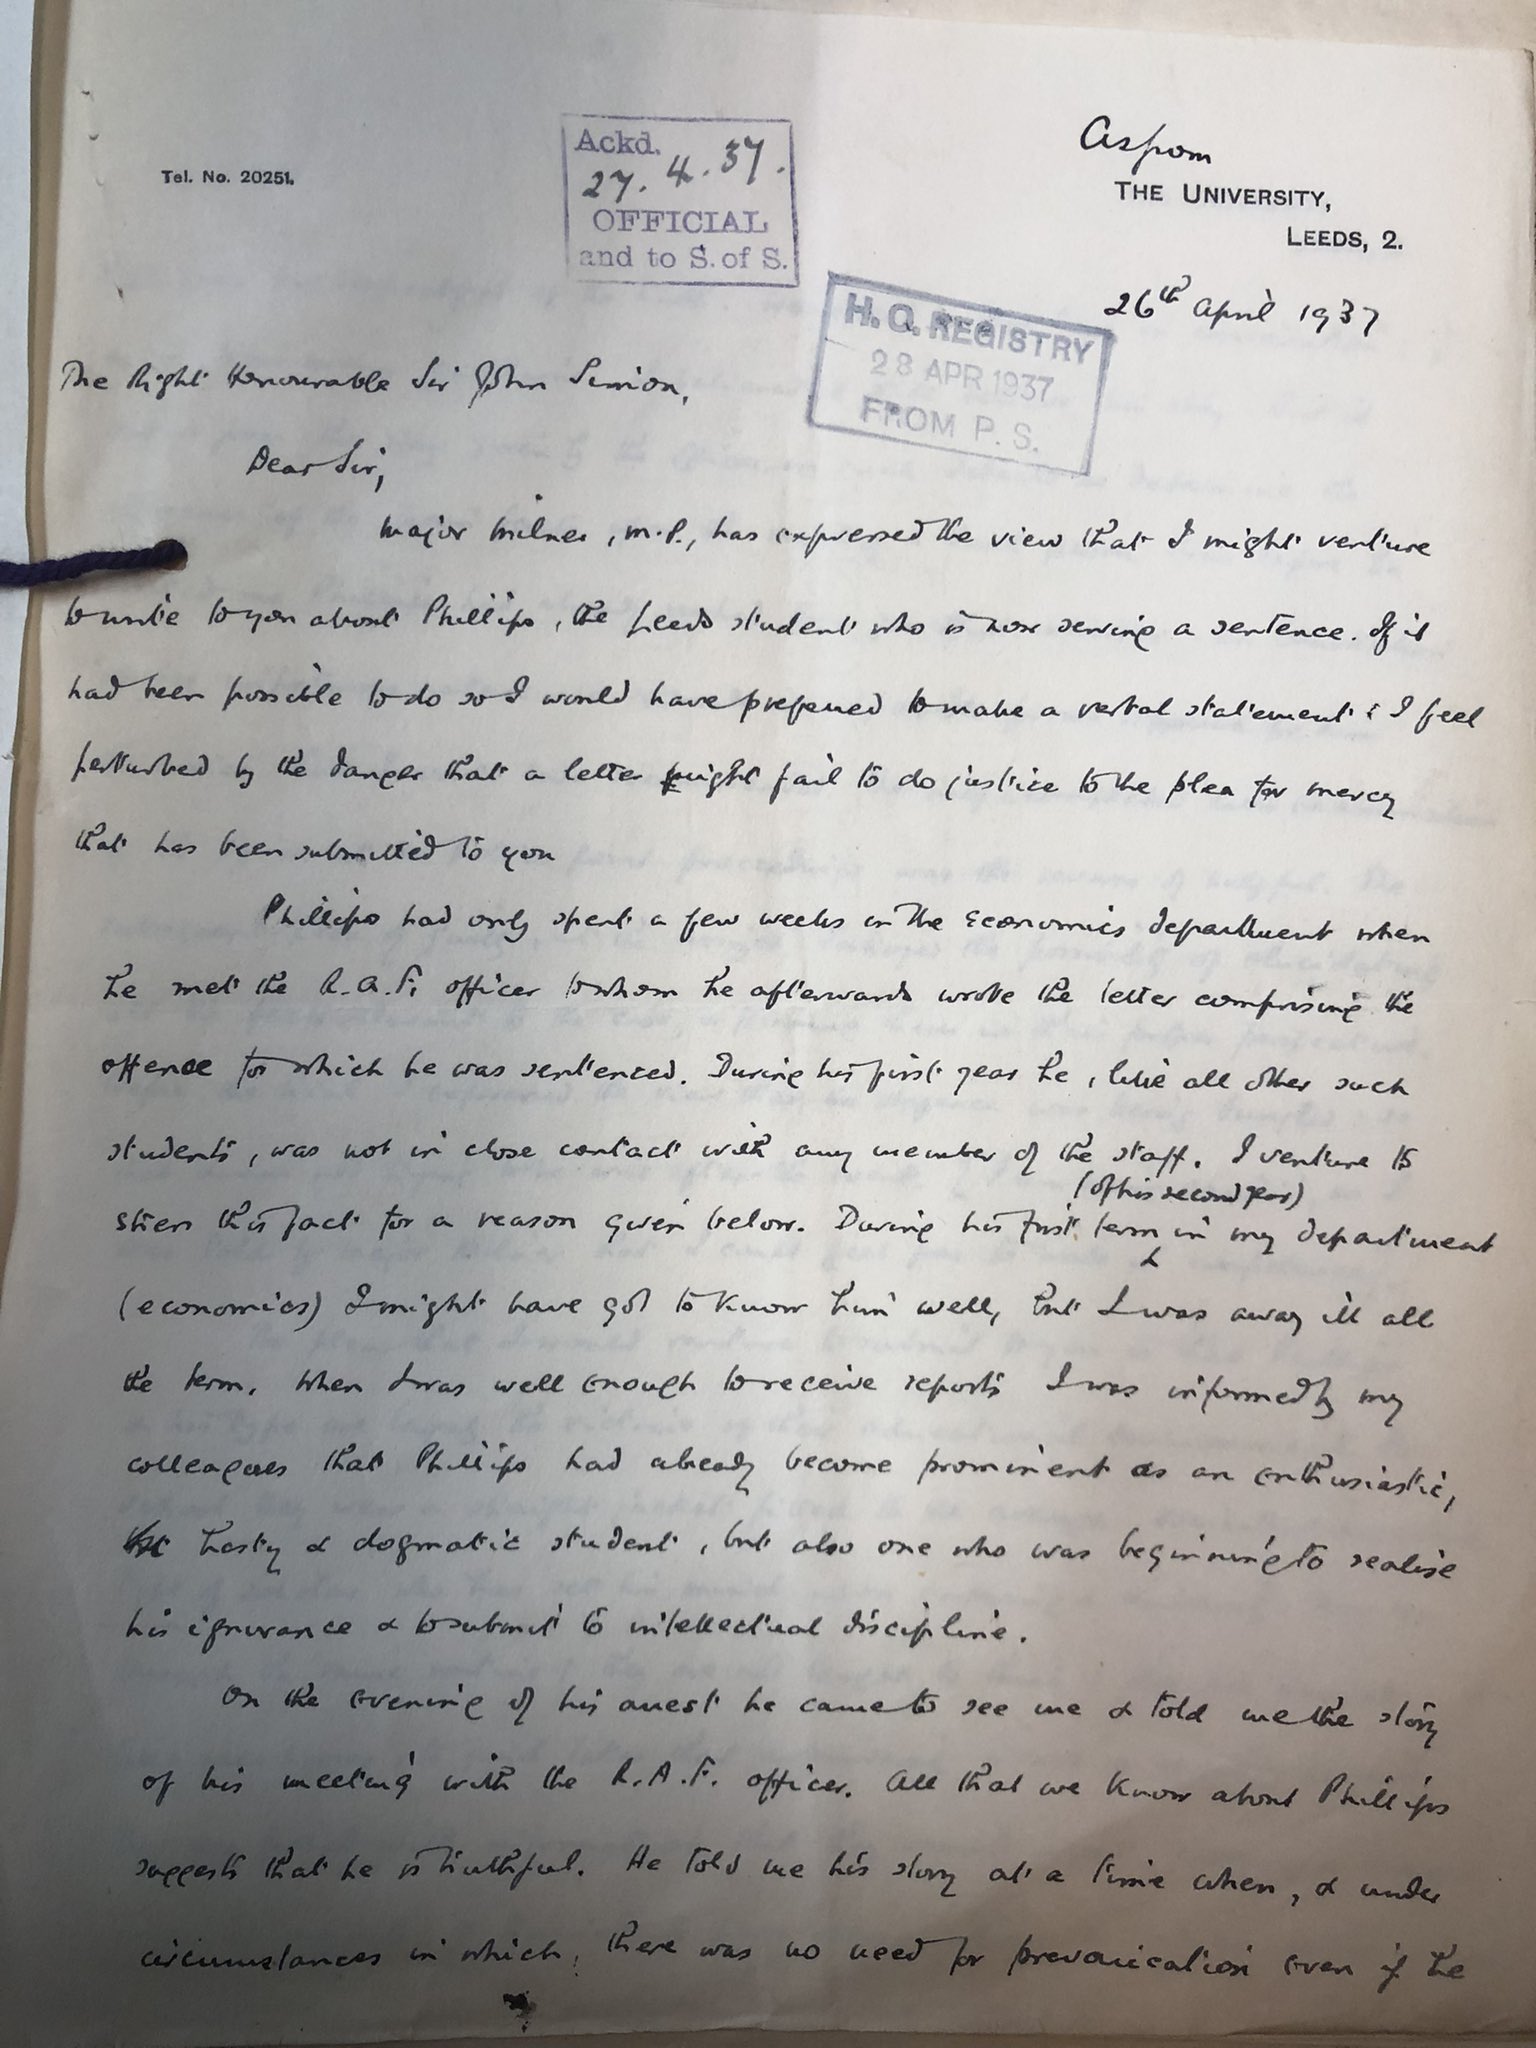 Tel. No. 20251.
Ackd.
27. 4. 37.
OFFICIAL
and to S. of S.
as from
THE UNIVERSITY,
LEEDS, 2.
26th April 1937
H.Q. REGISTRY
28 APR 1937
FROM P. S.
The Right Honourable Sir John Simon,
Dear Sir,
Major Milner, M.P., has expressed the view that I might venture
to write to you about Phillips, the Leeds student who is now serving a sentence. If it
had been possible to do so I would have preferred to make a verbal statement: I feel
perturbed by the danger that a letter might fail to do justice to the plea for mercy
that has been submitted to you
Phillips had only spent a few weeks in the Economics department when
he met the R.A.F. officer to whom he afterwards wrote the letter comprising the
offence for which he was sentenced. During his first year he, like all other such
students, was not in close contact with any member of the staff. I venture to
stress this fact for a reason given below. During his first term (of his second year) in my department
(economics) I might have got to know him well, but I was away ill all
the term. When I was well enough to receive reports I was informed by my
colleagues that Phillips had already become prominent as an enthusiastic,
hasty & dogmatic student, but also one who was beginning to realise
his ignorance & to submit to intellectual discipline.
On the evening of his arrest he came to see me & told me the story
of his meeting with the R.A.F. officer. All that we know about Phillips
suggests that he is truthful. He told me his story at a time when, & under
circumstances in which, there was no need for prevarication even if he